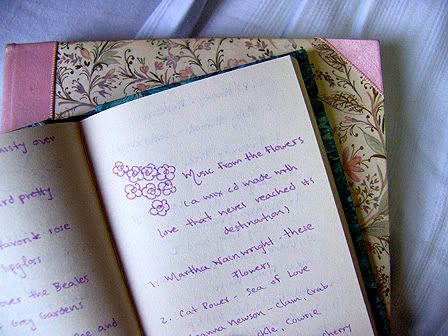 over
pretty
favorite rose
lipgloss
over the Beales
Grey Gardens
and
Music from the Flowers
(a mix cd made with
love that never reached its
destination)
1. Martha Wainwright - these
Flowers
2. Cat Power - Sea of Love
Newson - Clam, Crab,
Cowrie
cherry